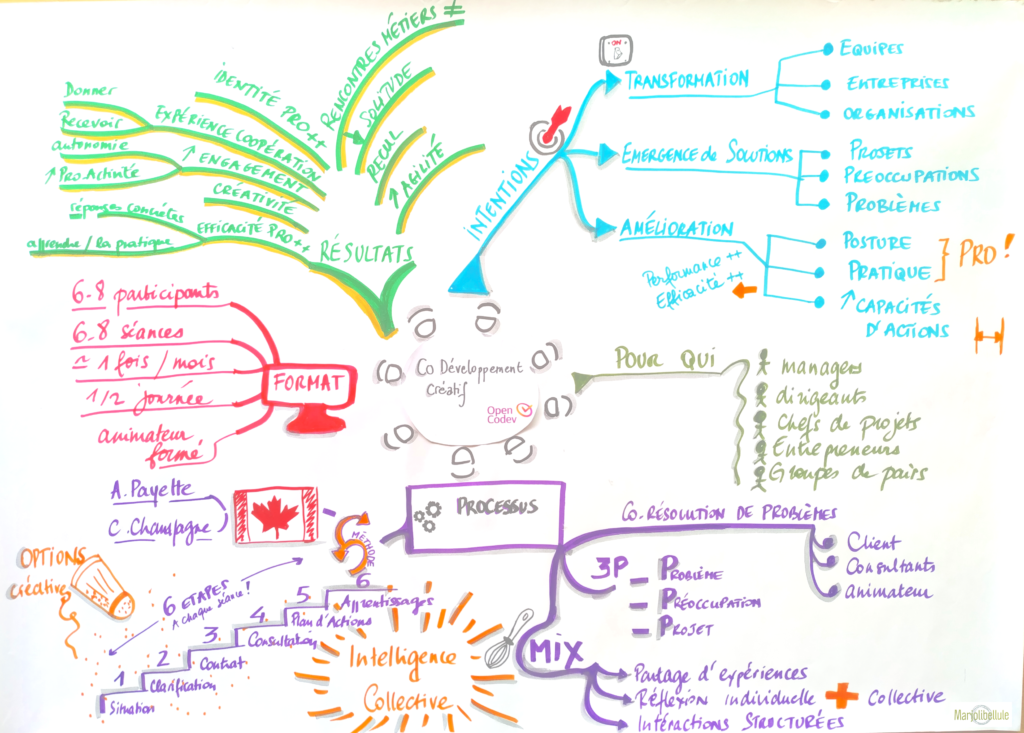 Co Développement
Créatif
Open
Codev
INTENTIONS
ON
TRANSFORMATION
EQUIPES
ENTREPRISES
ORGANISATIONS
EMERGENCE de SOLUTIONS
PROJETS
PREOCCUPATIONS
PROBLÈMES
AMÉLIORATION
Performance ++
Efficacité ++
POSTURE
PRATIQUE
PRO !
↑ CAPACITÉS
D'ACTIONS
POUR QUI
managers
dirigeants
Chefs de projets
Entrepreneurs
Groupes de pairs
PROCESSUS
CO-RÉSOLUTION DE PROBLÈMES
Client
Consultants
animateur
3P
- PROBLÈME
- PRÉOCCUPATION
- PROJET
MIX
Partage d'expériences
Réflexion individuelle + Collective
Intéractions STRUCTURÉES
MÉTHODE
A. Payette
C. Champagne
6 ETAPES
A chaque séance !
1 Situation
2 Clarification
3 Contrat
4 Consultation
5 Plan d'Actions
6 Apprentissages
OPTIONS
créatives
Intelligence
Collective
FORMAT
6-8 participants
6-8 séances
≃ 1 fois / mois
1/2 journée
animateur
formé
RÉSULTATS
EFFICACITÉ PRO ++
réponses concrètes
apprendre / la pratique
CRÉATIVITÉ
↑ ENGAGEMENT
autonomie
↑ Pro.Activité
EXPÉRIENCE COOPÉRATION
Donner
Recevoir
IDENTITÉ PRO ++
RENCONTRES MÉTIERS ≠
SOLITUDE
RECUL
↑ AGILITÉ
Marjolibellule